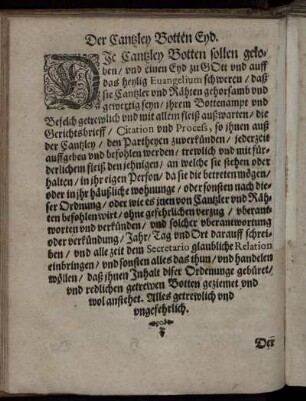 Der Cantzley Botten Eyd.
DJe Cantzley Botten sollen gelo-
ben/ vnd einen Eyd zu GOtt vnd auff
das heylig Euangelium schweren/ daß
sie Cantzler vnd Rähten gehorsamb vnd
gewertig seyn/ jhrem Bottenampt vnd
Befelch getrewlich vnd mit allem fleiß außwarten/ die
Gerichtsbrieff/ Citation vnd Process, so jhnen auß
der Cantzley/ den Partheyen zuverkünden/ jederzeit
auffgeben vnd befohlen werden/ trewlich vnd mit für-
derlichem fleiß den jehnigen/ an welche sie stehen oder
halten/ in jhr eigen Person/ da sie die betretten mögen/
oder in jhr häußliche wohnunge/ oder sonsten nach die-
ser Ordnung/ oder wie es jnen von Cantzler vnd Räh-
ten befohlen wirt/ ohne gefehrlichen verzug/ vberant-
worten vnd verkünden/ vnd solcher vberantwortung
oder verkündung/ Jahr/ Tag vnd Ort darauff schrei-
ben/ vnd alle zeit dem Secretario glaubliche Relation
einbringen/ vnd sonsten alles das thun/ vnd handelen
wöllen/ daß jhnen Inhalt diser Ordenunge gebüret/
vnd redlichen getrewen Botten geziemet vnd
wol anstehet. Alles getrewlich vnd
vngefehrlich.
Der